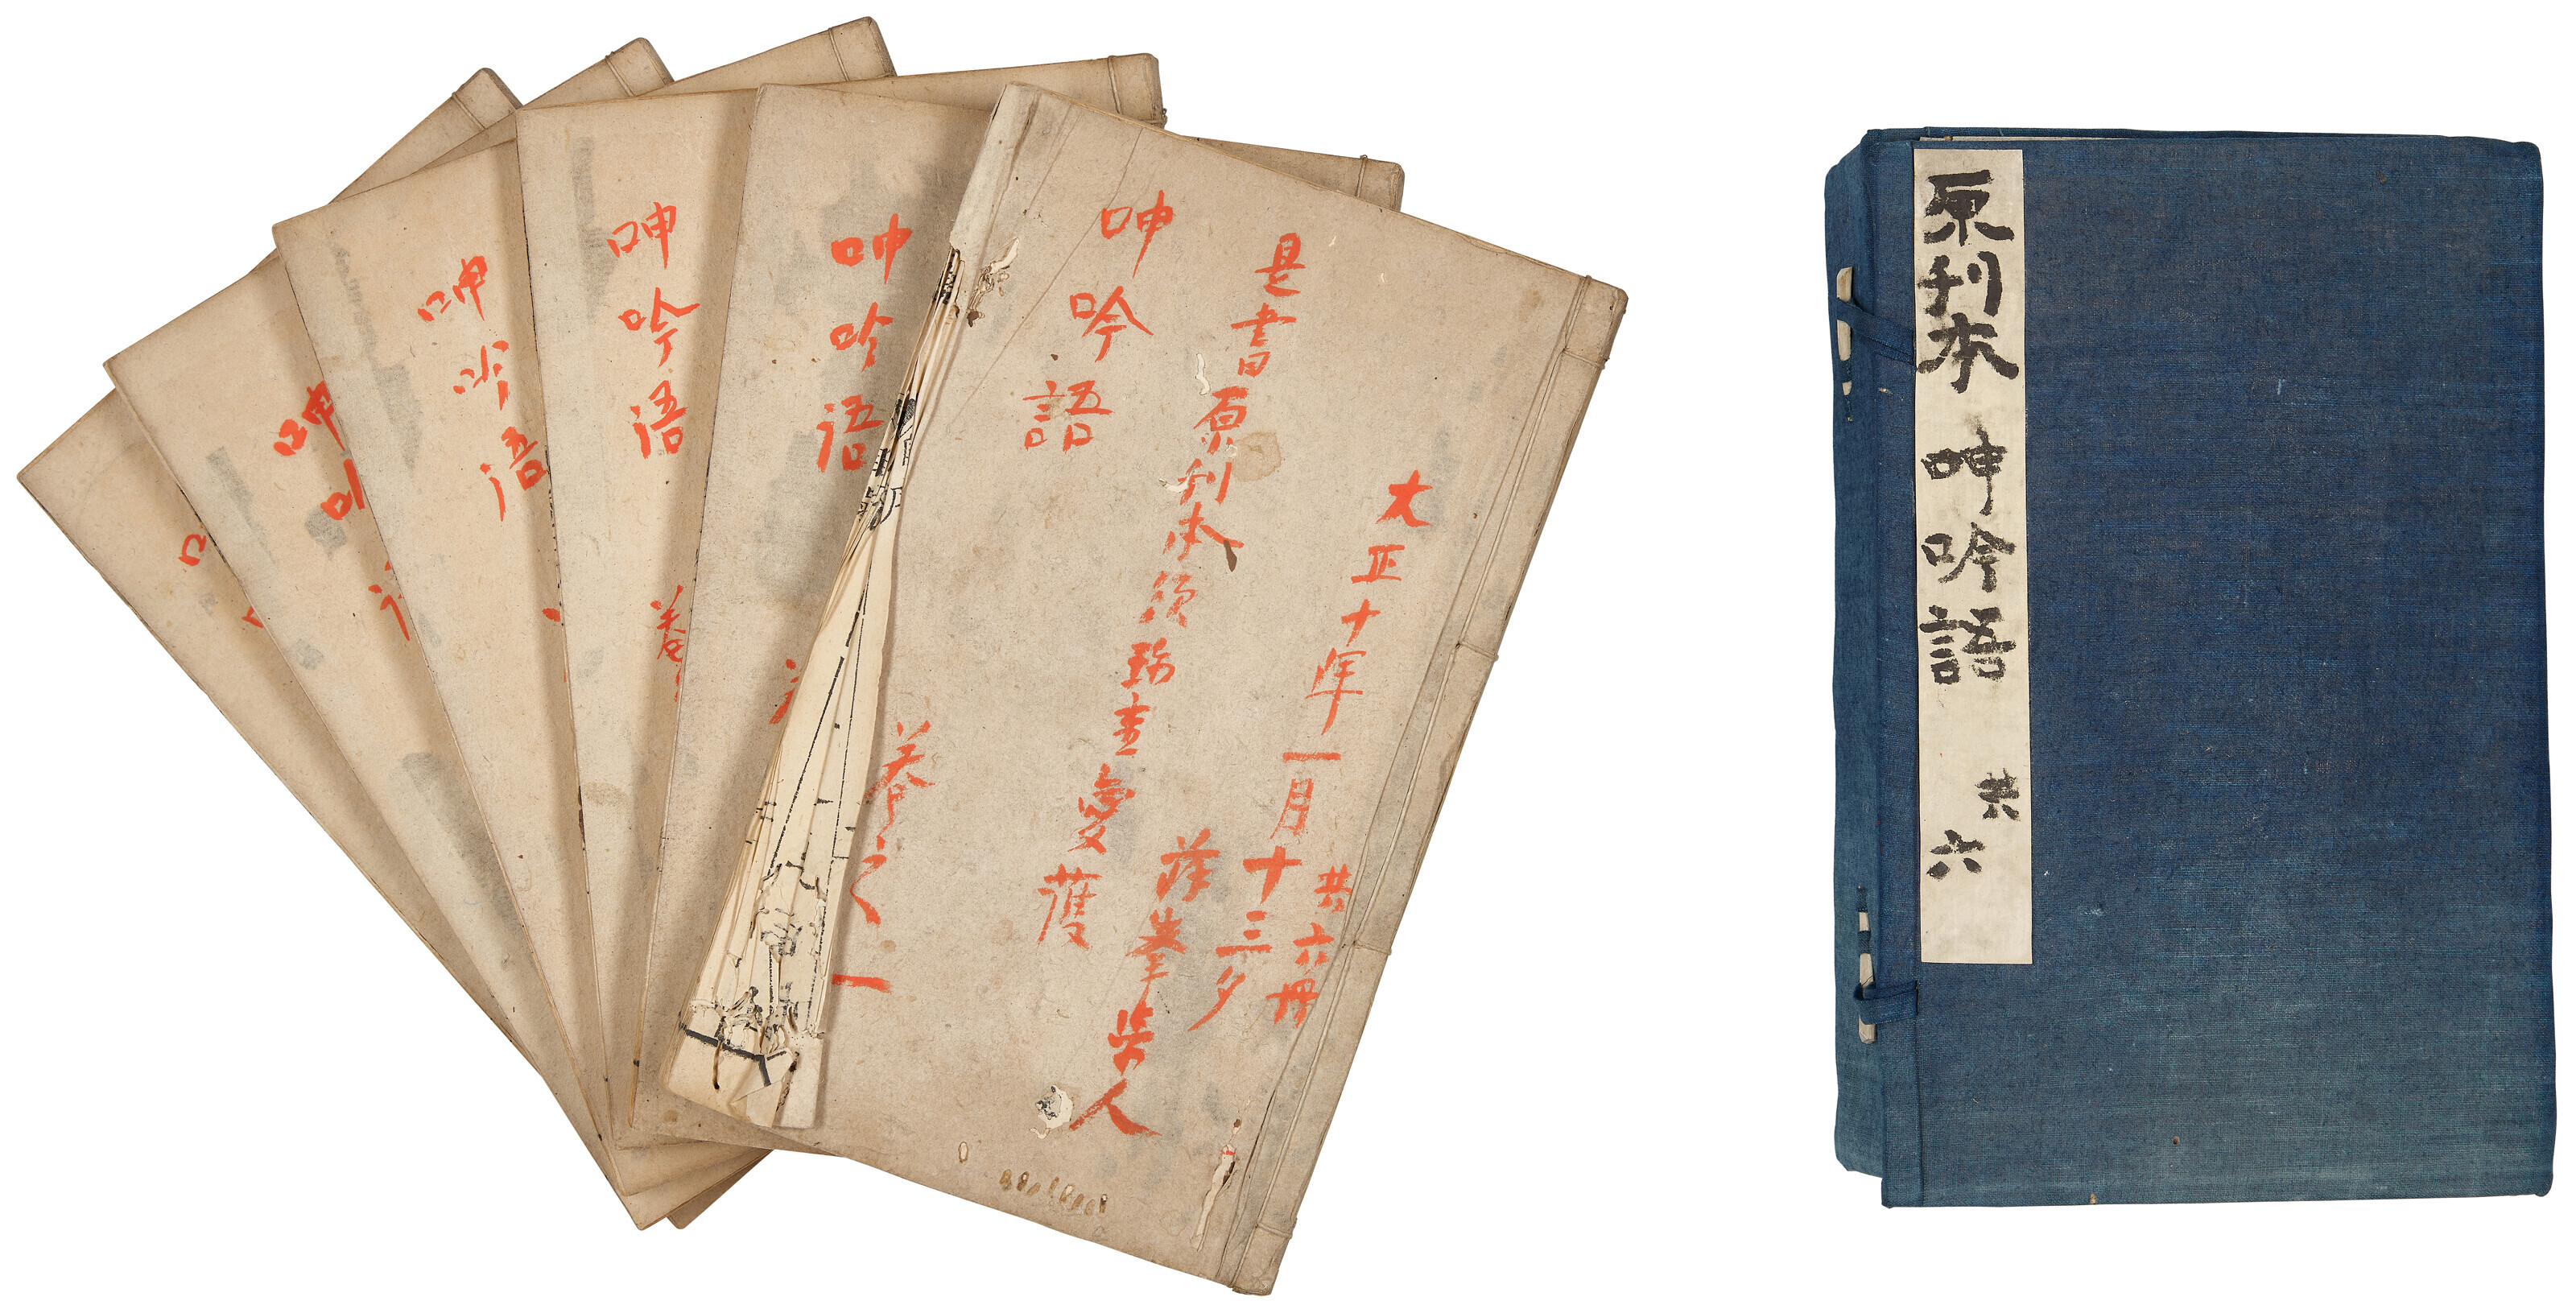 大正十年一月十三夕
共六冊
是書原刊本須珎重愛護
蘇峯学人
呻吟語
卷之一
呻吟語
呻吟語
卷
呻吟語
呻
原刊本 呻吟語 共六